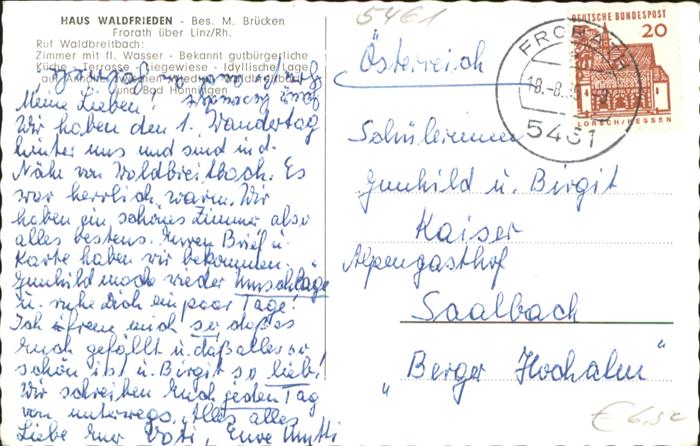 HAUS WALDFRIEDEN - Bes. M. Brücken
Frorath über Linz/Rh.
Ruf Waldbreitbach:
Zimmer mit fl. Wasser - Bekannt gutbürgerliche
Küche - Terrasse - Liegewiese - Idyllische Lage
und Bad Hönningen
Meine Lieben!
Wir haben den 1. Wandertag
hinter uns und sind in d.
Nähe von Waldbreitbach. Es
war herrlich warm. Wir
haben ein schönes Zimmer also
alles bestens. Euren Brief u.
Karte haben wir bekommen.
Gunhild mach wieder Umschläge
u. ruhe Dich ein paar Tage!
Ich freue mich so, daß es
Euch gefällt u. daß alles so
schön ist u. Birgit so lieb!
Wir schreiben Euch jeden Tag
von unterwegs. Alles alles
Liebe Euer Vati, Eure Mutti
5461
Österreich
Schülerinnen
Gunhild u. Birgit
Kaiser
Alpengasthof
Saalbach
"Berger Hochalm"
DEUTSCHE BUNDESPOST
20
LORSCH/HESSEN
FRORATH
5461